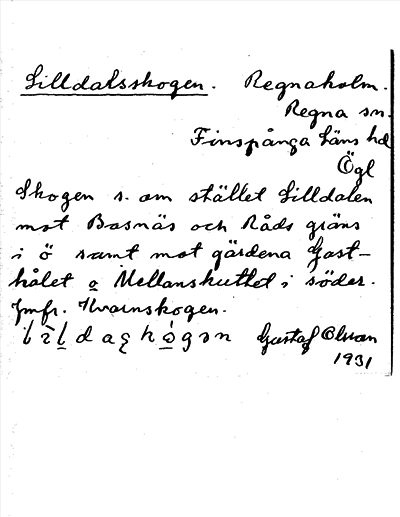 Lilldalsskogen. Regnaholm.
Regna sn.
Finspånga läns hd
Ögl
Skogen s. om stället Lilldalen
mot Basnäs och Råds gräns
i ö samt mot gärdena Gast-
hålet o Mellanskuttet i söder.
Jmfr. Kvarnskogen.
Gustaf Olsson
1931